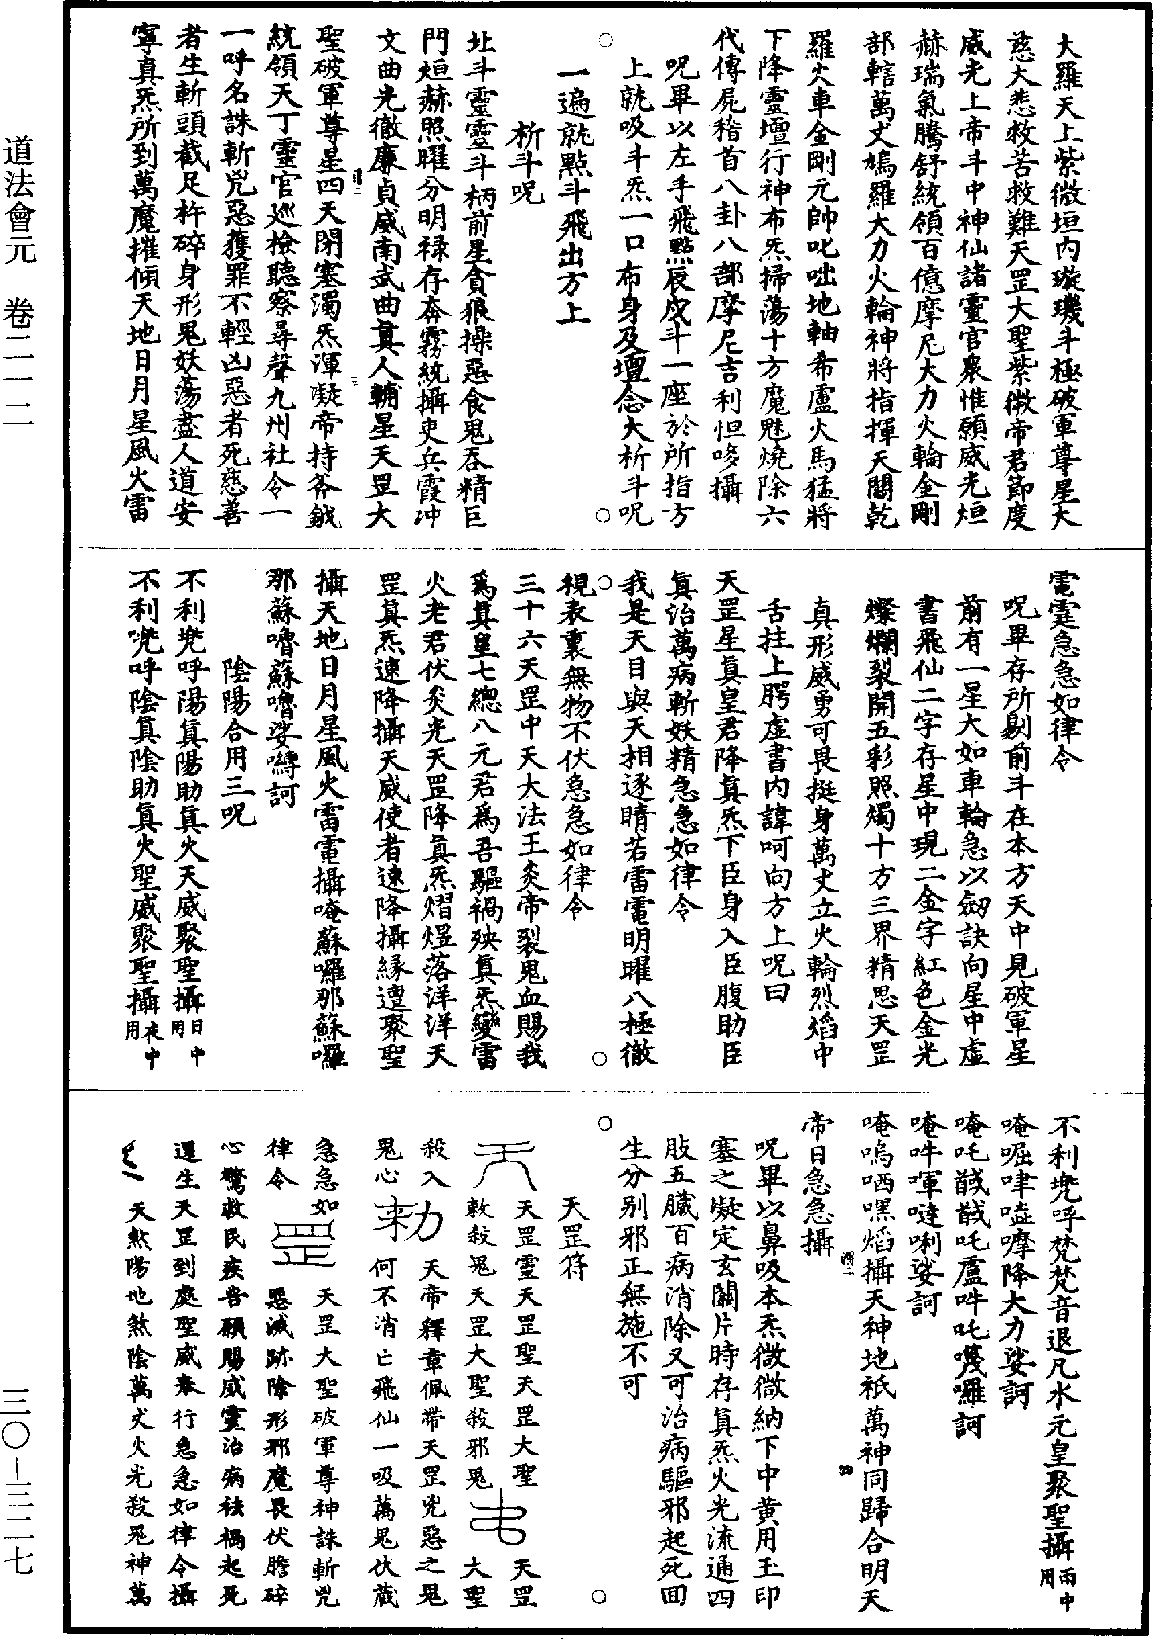 大羅天上紫微垣內璇璣斗極破軍尊星大
慈大悲救苦救難天罡大聖紫微帝君節度
威光上帝斗中神仙諸靈官眾惟願威光烜
赫瑞氣騰舒統領百億摩尼大力火輪金剛
部轄萬丈鳩羅大力火輪神將指揮天關乾
羅火車金剛元帥叱咄地軸希盧火馬猛將
下降靈壇行神布炁掃蕩十方魔魅燒除六
代傳屍稽首八卦八部摩尼吉利怛哆攝
呪畢以左手飛點辰戌斗一座於所指方
上就吸斗炁一口布身及壇念大析斗呪
一遍就點斗飛出方上
析斗呪
北斗靈靈斗柄前星貪狼操惡食鬼吞精巨
門烜赫照曜分明祿存奔霧統攝吏兵霞冲
文曲光徹廉貞威南武曲真人輔星天罡大
聖破軍尊星四天閉塞濁炁渾凝帝持斧鉞
統領天丁靈官巡檢聽察尋聲九州社令一
一呼名誅斬兇惡獲罪不輕凶惡者死慈善
者生斬頭截足杵碎身形鬼妖蕩盡人道安
寧真炁所到萬魔摧傾天地日月星風火雷
電霆急急如律令
呪畢存所剔前斗在本方天中見破軍星
前有一星大如車輪急以劒訣向星中虛
書飛仙二字存星中現二金字紅色金光
燦爛裂開五彩照燭十方三界精思天罡
真形威勇可畏挺身萬丈立火輪烈焰中
舌拄上腭虛書內諱呵向方上呪曰
天罡星真皇君降真炁下臣身入臣腹助臣
真治萬病斬妖精急急如律令
我是天目與天相逐睛若雷電明曜八極徹
視表裏無物不伏急急如律令
三十六天罡中天大法王炎帝裂鬼血賜我
為真皇七總八元君為吾驅禍殃真炁變雷
火老君伏炎光天罡降真炁熠煜落洋洋天
罡真炁速降攝天威使者速降攝緣遭聚聖
攝天地日月星風火雷電攝唵蘇囉那蘇囉
那蘇嚕蘇嚕娑嚩訶
陰陽合用三呪
不利兠呼陽真陽助真火天威聚聖攝日中用
不利兠呼陰真陰助真火聖威聚聖攝夜中用
不利兠呼梵梵音退凡水元皇聚聖攝雨中用
唵啒㖀嗑嚤降大力娑訶
唵吒馘馘吒廬吽吒囉訶
唵吽㖶噠唎娑訶
唵嗚哂嘿焰攝天神地祇萬神同歸合明天
帝日急急攝
呪畢以鼻吸本炁微微納下中黃用玉印
塞之凝定玄關片時存真炁火光流通四
肢五臟百病消除又可治病驅邪起死回
生分別邪正無施不可
天罡符
天罡靈天罡聖天罡大聖　天罡
敕殺鬼天罡大聖殺邪鬼　大聖
殺入　天帝釋章佩帶天罡兇惡之鬼
鬼心　何不消亡飛仙一吸萬鬼伏藏
急急如　天罡大聖破軍尊神誅斬兇
律令　惡滅跡除形邪魔畏伏膽碎
心驚救民疾苦願賜威靈治病祛禍起死
還生天罡到處聖威奉行急急如律令攝
天煞陽地煞陰萬丈火光殺鬼神萬
道法會元　卷二一二
三〇－三二七